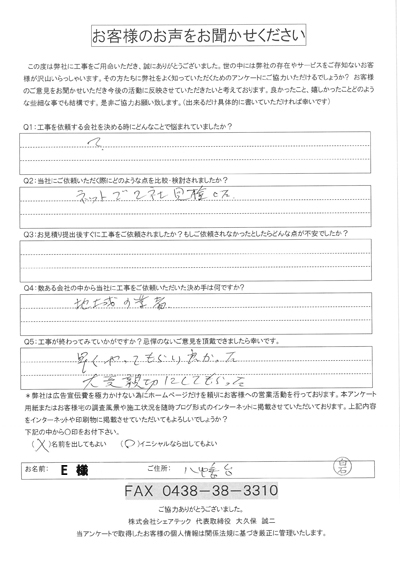 お客様のお声をお聞かせください
この度は弊社に工事をご用命いただき、誠にありがとうございました。世の中には弊社の存在やサービスをご存知ないお客
様が沢山いらっしゃいます。その方たちに弊社をよく知っていただくためのアンケートにご協力いただけるでしょうか? お客様
のご意見をお聞かせいただき今後の活動に反映させていただきたいと考えております。良かったこと、嬉しかったことどのよう
な些細な事でも結構です、是非ご協力お願い致します。(出来るだけ具体的に書いていただければ幸いです)
Q1:工事を依頼する会社を決める時にどんなことで悩まれていましたか?
Q2:当社にご依頼いただく際にどのような点を比較・検討されましたか?
ネットで2社見積
Q3:お見積り提出後すぐに工事をご依頼されましたか?もしご依頼されなかったとしたらどんな点が不安でしたか?
Q4:数ある会社の中から当社に工事をご依頼いただいた決め手は何ですか?
地土域の業者
Q5:工事が終わってみていかがですか?忌憚のないご意見を頂戴できましたら幸いです。
早くやってもらい良かった
大変親切にしてもらった
*弊社は広告宣伝費を極力かけない為にホームページだけを頼りにお客様への営業活動を行っております。本アンケート
用紙またはお客様宅の調査風景や施工状況を随時ブログ形式のインターネットに掲載させていただいております。上記内容
をインターネットや印刷物に掲載させていただいてもよろしいでしょうか?
下記の中から〇印をお付下さい。
(X)名前を出してもよい (〇)イニシャルなら出してもよい
お名前: E 様 ご住所: 八幡台 白石
FAX 0438-38-3310
ご協力ありがとうございました。
株式会社シェアテック 代表取締役 大久保 誠二
当アンケートで取得したお客様の個人情報は関係法規に基づき厳正に管理いたします。